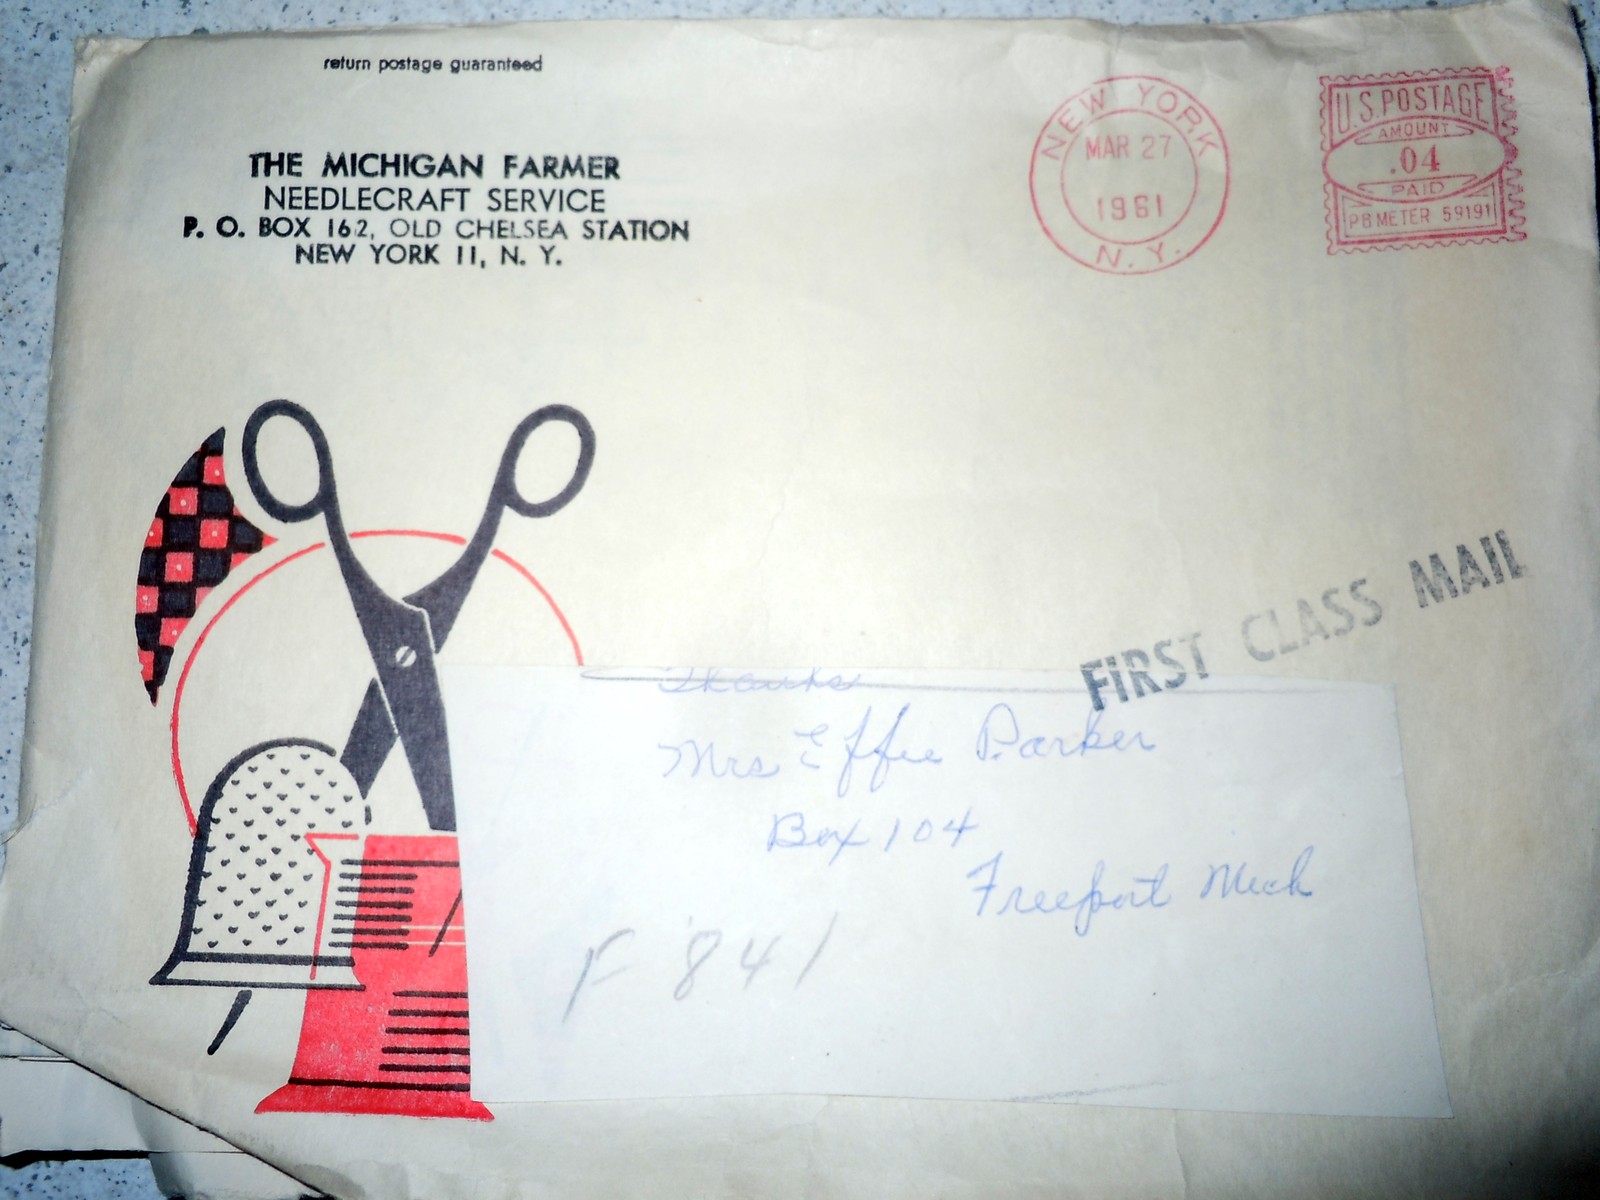 return postage guaranteed
THE MICHIGAN FARMER
NEEDLECRAFT SERVICE
P. O. BOX 162, OLD CHELSEA STATION
NEW YORK 11, N. Y.
NEW YORK
MAR 27
1961
N. Y.
U.S. POSTAGE
AMOUNT
.04
PAID
PB METER 59191
FIRST CLASS MAIL
Thanks
Mrs Effie Parker
Box 104
Freeport Mich
F 841